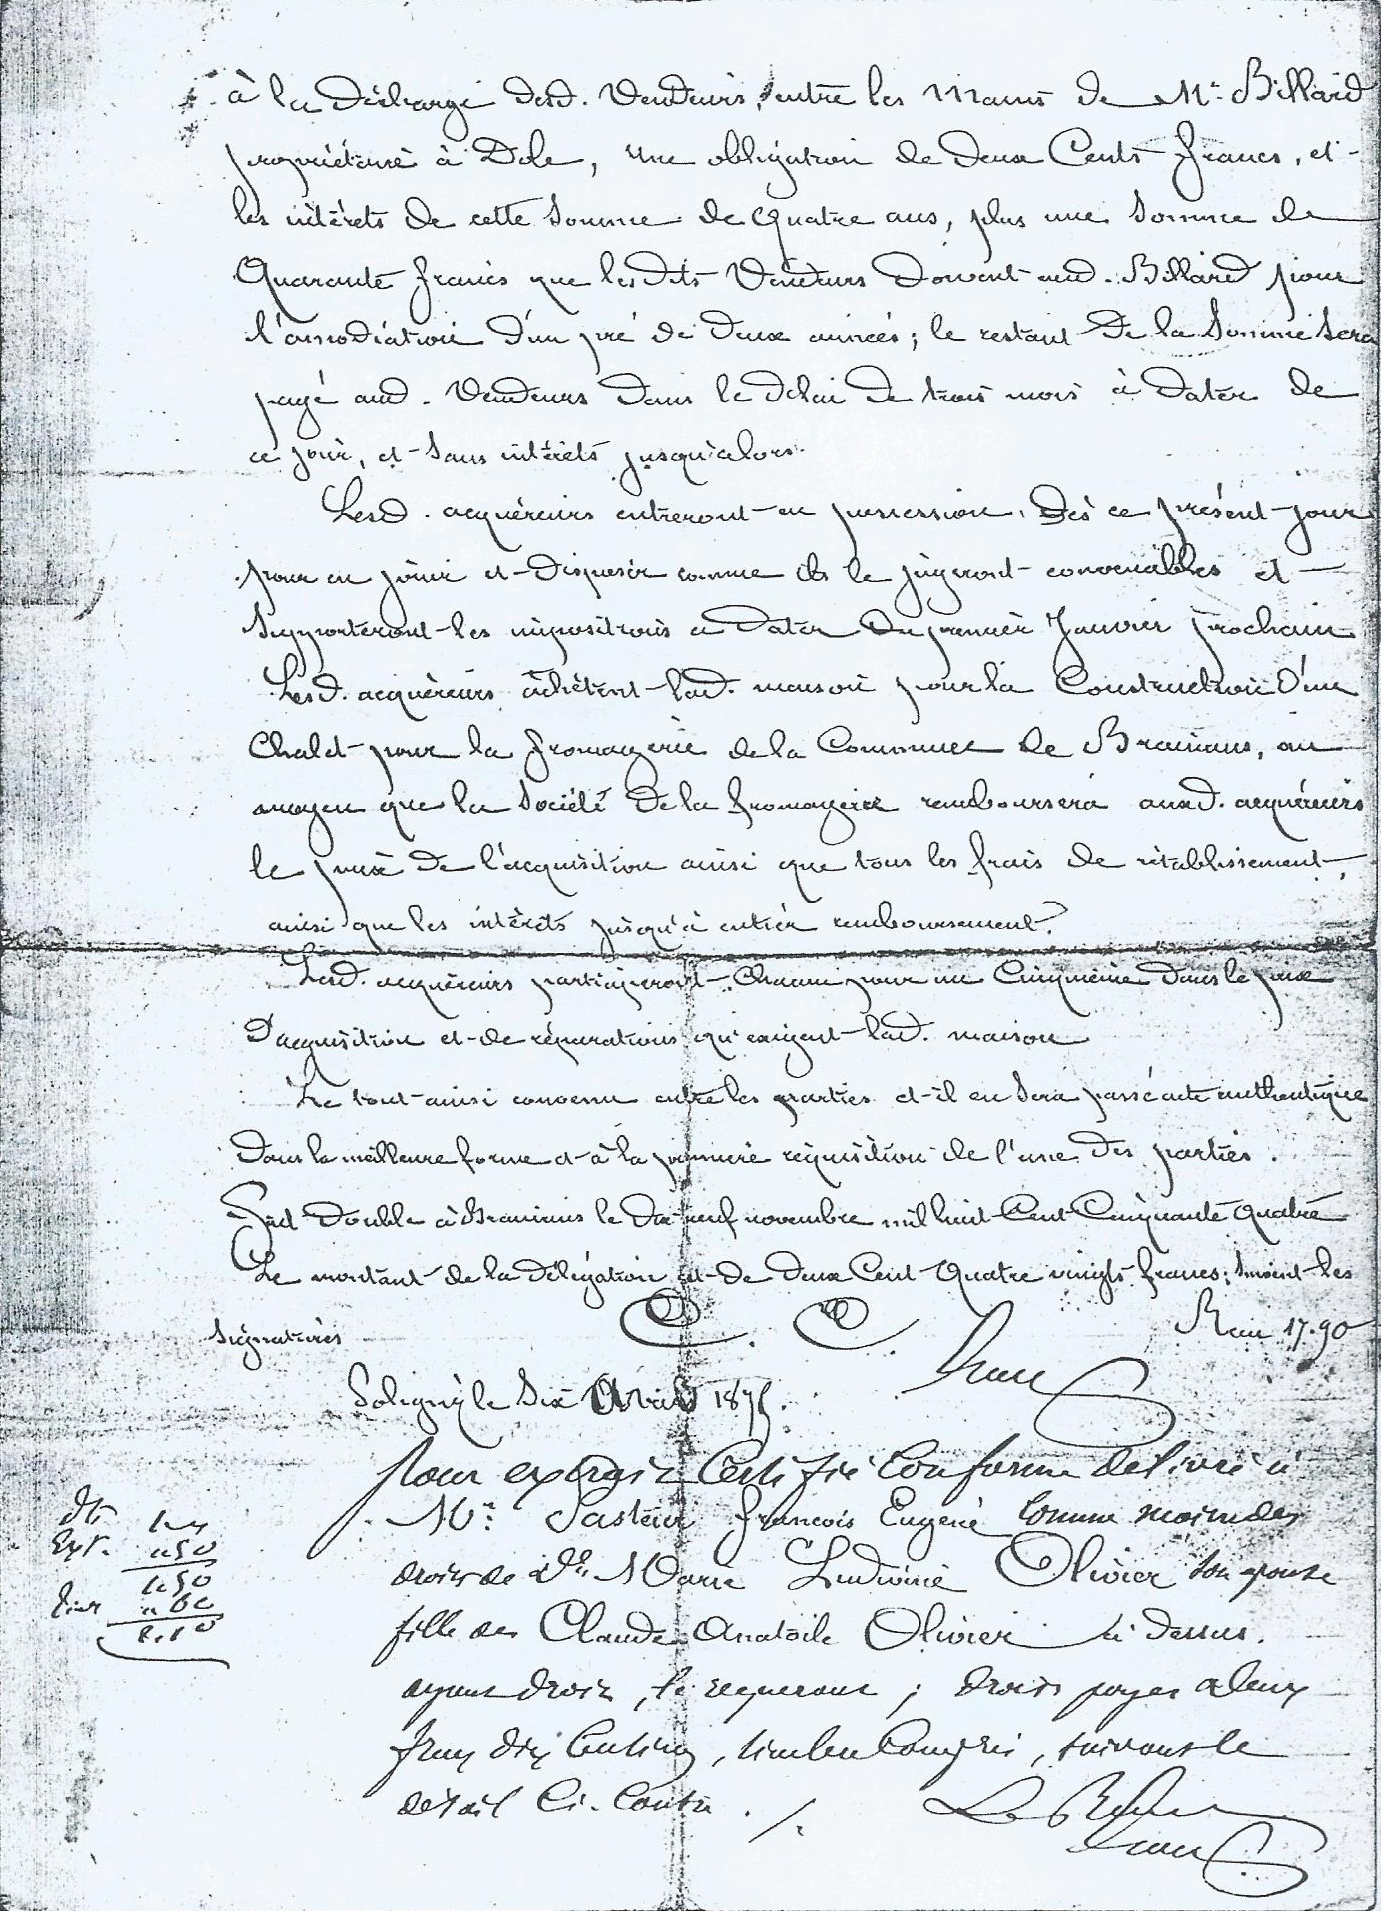 à la décharge desd. Vendeurs, entre les mains de Mr. Billard
propriétaire à Dole, une obligation de deux Cents francs, et
les intérêts de cette somme de quatre ans, plus une somme de
Quarante francs que lesdits Vendeurs doivent aud. Billard pour
l'amodiation d'un pré de deux années; le restant de la somme sera
payé aud. Vendeurs dans le délai de trois mois à dater de
ce jour, et sans intérêts jusqu'alors.
Lesd. acquéreurs entreront en possession, dès ce présent jour
pour en jouir et disposer comme ils le jugeront convenables et
supporteront les impositions à dater du premier Janvier prochain
Lesd. acquéreurs achètent lad. maison pour la Construction d'un
Chalet pour la fromagerie de la Commune de Brainans, au
moyen que la Société de la fromagerie remboursera auxd. acquéreurs
le prix de l'acquisition ainsi que tous les frais de rétablissement,
ainsi que les intérêts jusqu'à entier remboursement.
Lesd. acquéreurs participeront Chacun pour un Cinquième dans le prix
d'acquisition et de réparations qu'exigent lad. maison
Le tout ainsi convenu entre les parties et il en sera passé acte authentique
dans la meilleure forme et à la première réquisition de l'une des parties.
Fait double à Brainans le dix neuf novembre mil huit Cent Cinquante quatre
Le montant de la délégation est de deux Cent Quatre vingts francs; suivent les
signatures
17.90
Poligny le Six Avril 187
Pour extrait Certifié Conforme délivré à
Mr. Pasteur françois Eugène comme
droits de de Marie Ludivine Olivier son épouse
fille de Claude Anatoile Olivier ci dessus.
ayant droit, le requérant; droits payés deux
francs dix Centimes, timbre Compris, suivant le
détail Ci-Contre.
Ext. 50
1.50
60
2.10